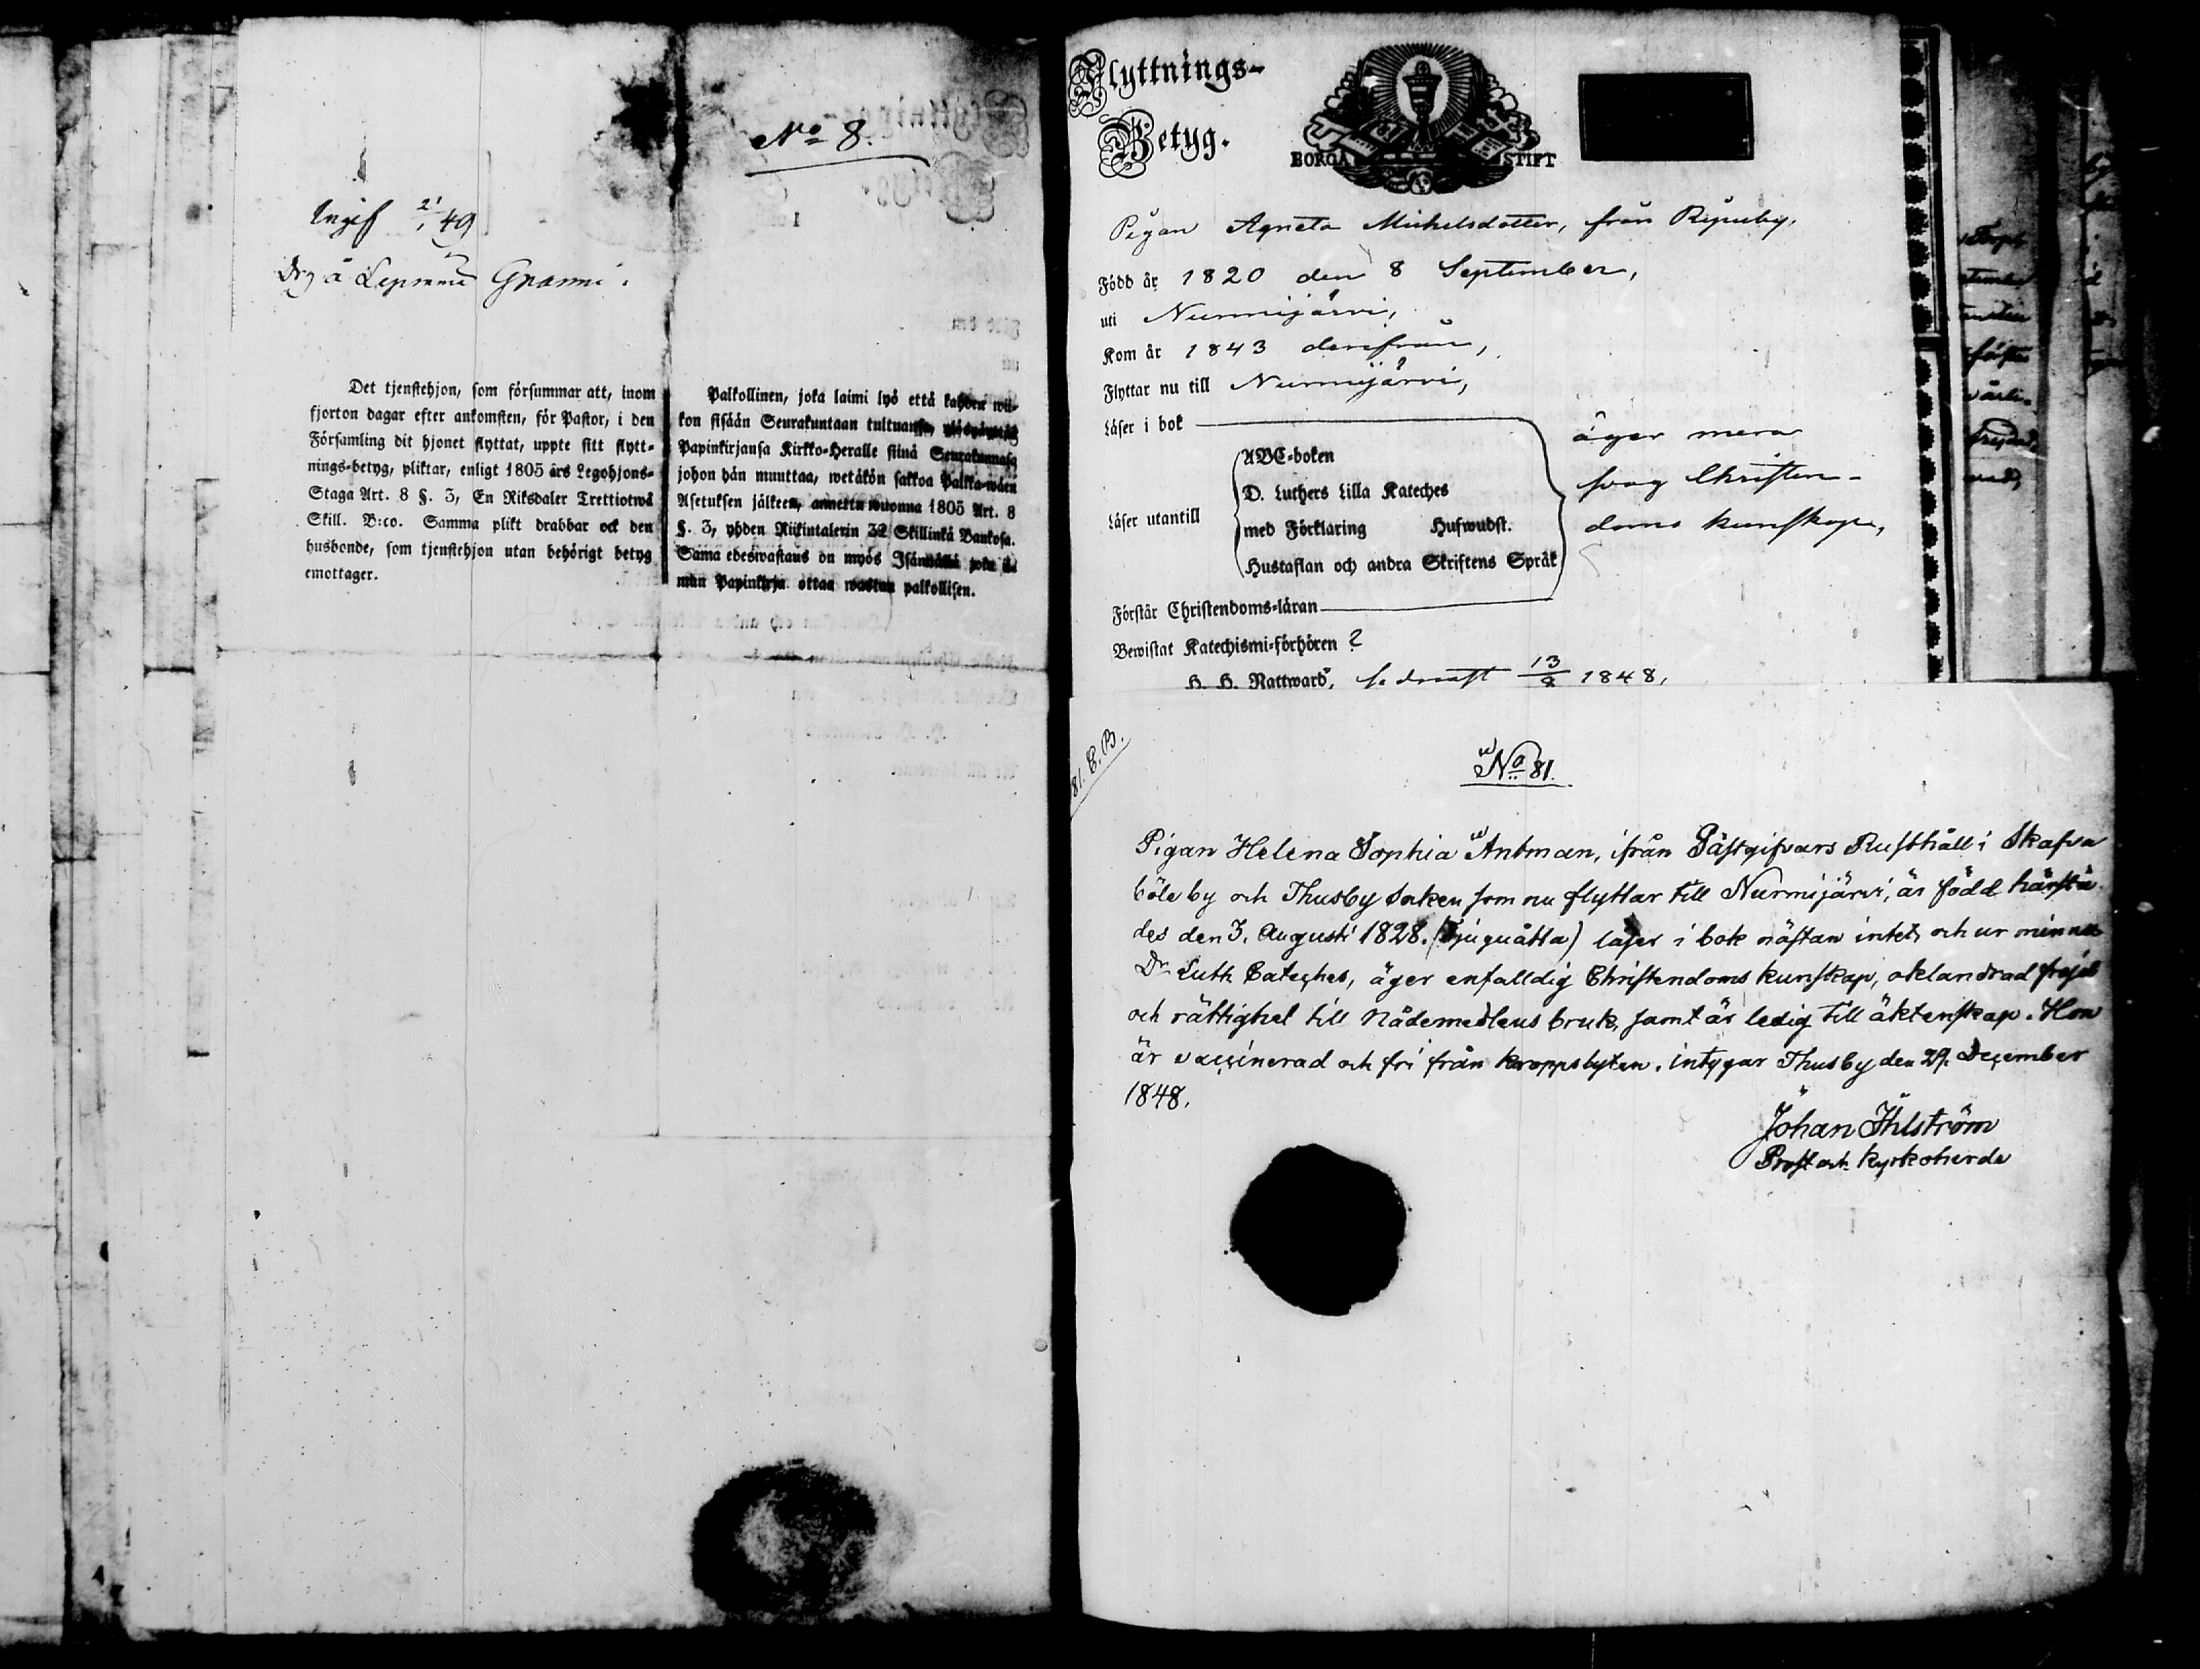 No 8.
Ingif 21/1 49
Drg å Gramni.
Det tjenstehjon, som försummar att, inom
fjorton dagar efter ankomsten, för Pastor, i den
Församling dit hjonet flyttat, uppte sitt flytt-
nings-betyg, pliktar, enligt 1805 års Legohjons-
Staga Art. 8 §. 3, En Riksdaler Trettiotwå
Skill. B:co. Samma plikt drabbar ock den
husbonde, som tjenstehjon utan behörigt betyg
emottager.
Palkollinen, joka laimi lyö että kahden wii-
kon sisään Seurakuntaan tultuansa,
Papinkirjansa Kirkko-Heralle siinä Seurakunnasa
johon hän muuttaa, wetäkön sakkoa Palkka-wäen
Asetuksen jälkeen, annettu wuonna 1805 Art. 8
§. 3, yhden Riikintalerin 32 Skillinkä Bankosa.
Sama edeswastaus on myös Isännällä joka il-
man Papinkirja ottaa wastan palkollisen.
Flyttnings-
Betyg.
BORGÅ STIFT
Pigan Agneta Michelsdotter, från
Född år 1820 den 8 September,
uti Nurmijärvi,
Kom år 1843 derifrån,
Flyttar nu till Nurmijärvi,
Läser i bok
Läser utantill
ABC-boken
D. Luthers Lilla Kateches
med Förklaring Hufwudst.
Hustaflan och andra Skriftens Språk
äger mera
svag Christen-
doms kunskap,
Förstår Christendoms-läran
Bewistat Katechismi-förhören ?
H. H. Nattward, sednast 13/8 1848,
81. C. B.
No 81.
Pigan Helena Sophia Antman, ifrån Gästgifvars Rusthåll i Skafva
böle by och Thusby Socken som nu flyttar till Nurmijärvi, är född härstä
des den 3. Augusti 1828. (Tjuguåtta) läser i bok nästan intet, och ur minnet
Dr. Luth. Cateches, äger enfalldig Christendoms kunskap, oklandrad frejd
och rättighet till Nådemedlens bruk, samt är ledig till äktenskap. Hon
är vaccinerad och fri från kroppslyten. intygar Thusby den 29. December
1848.
Johan Ihlström
Prost och Kyrkoherde